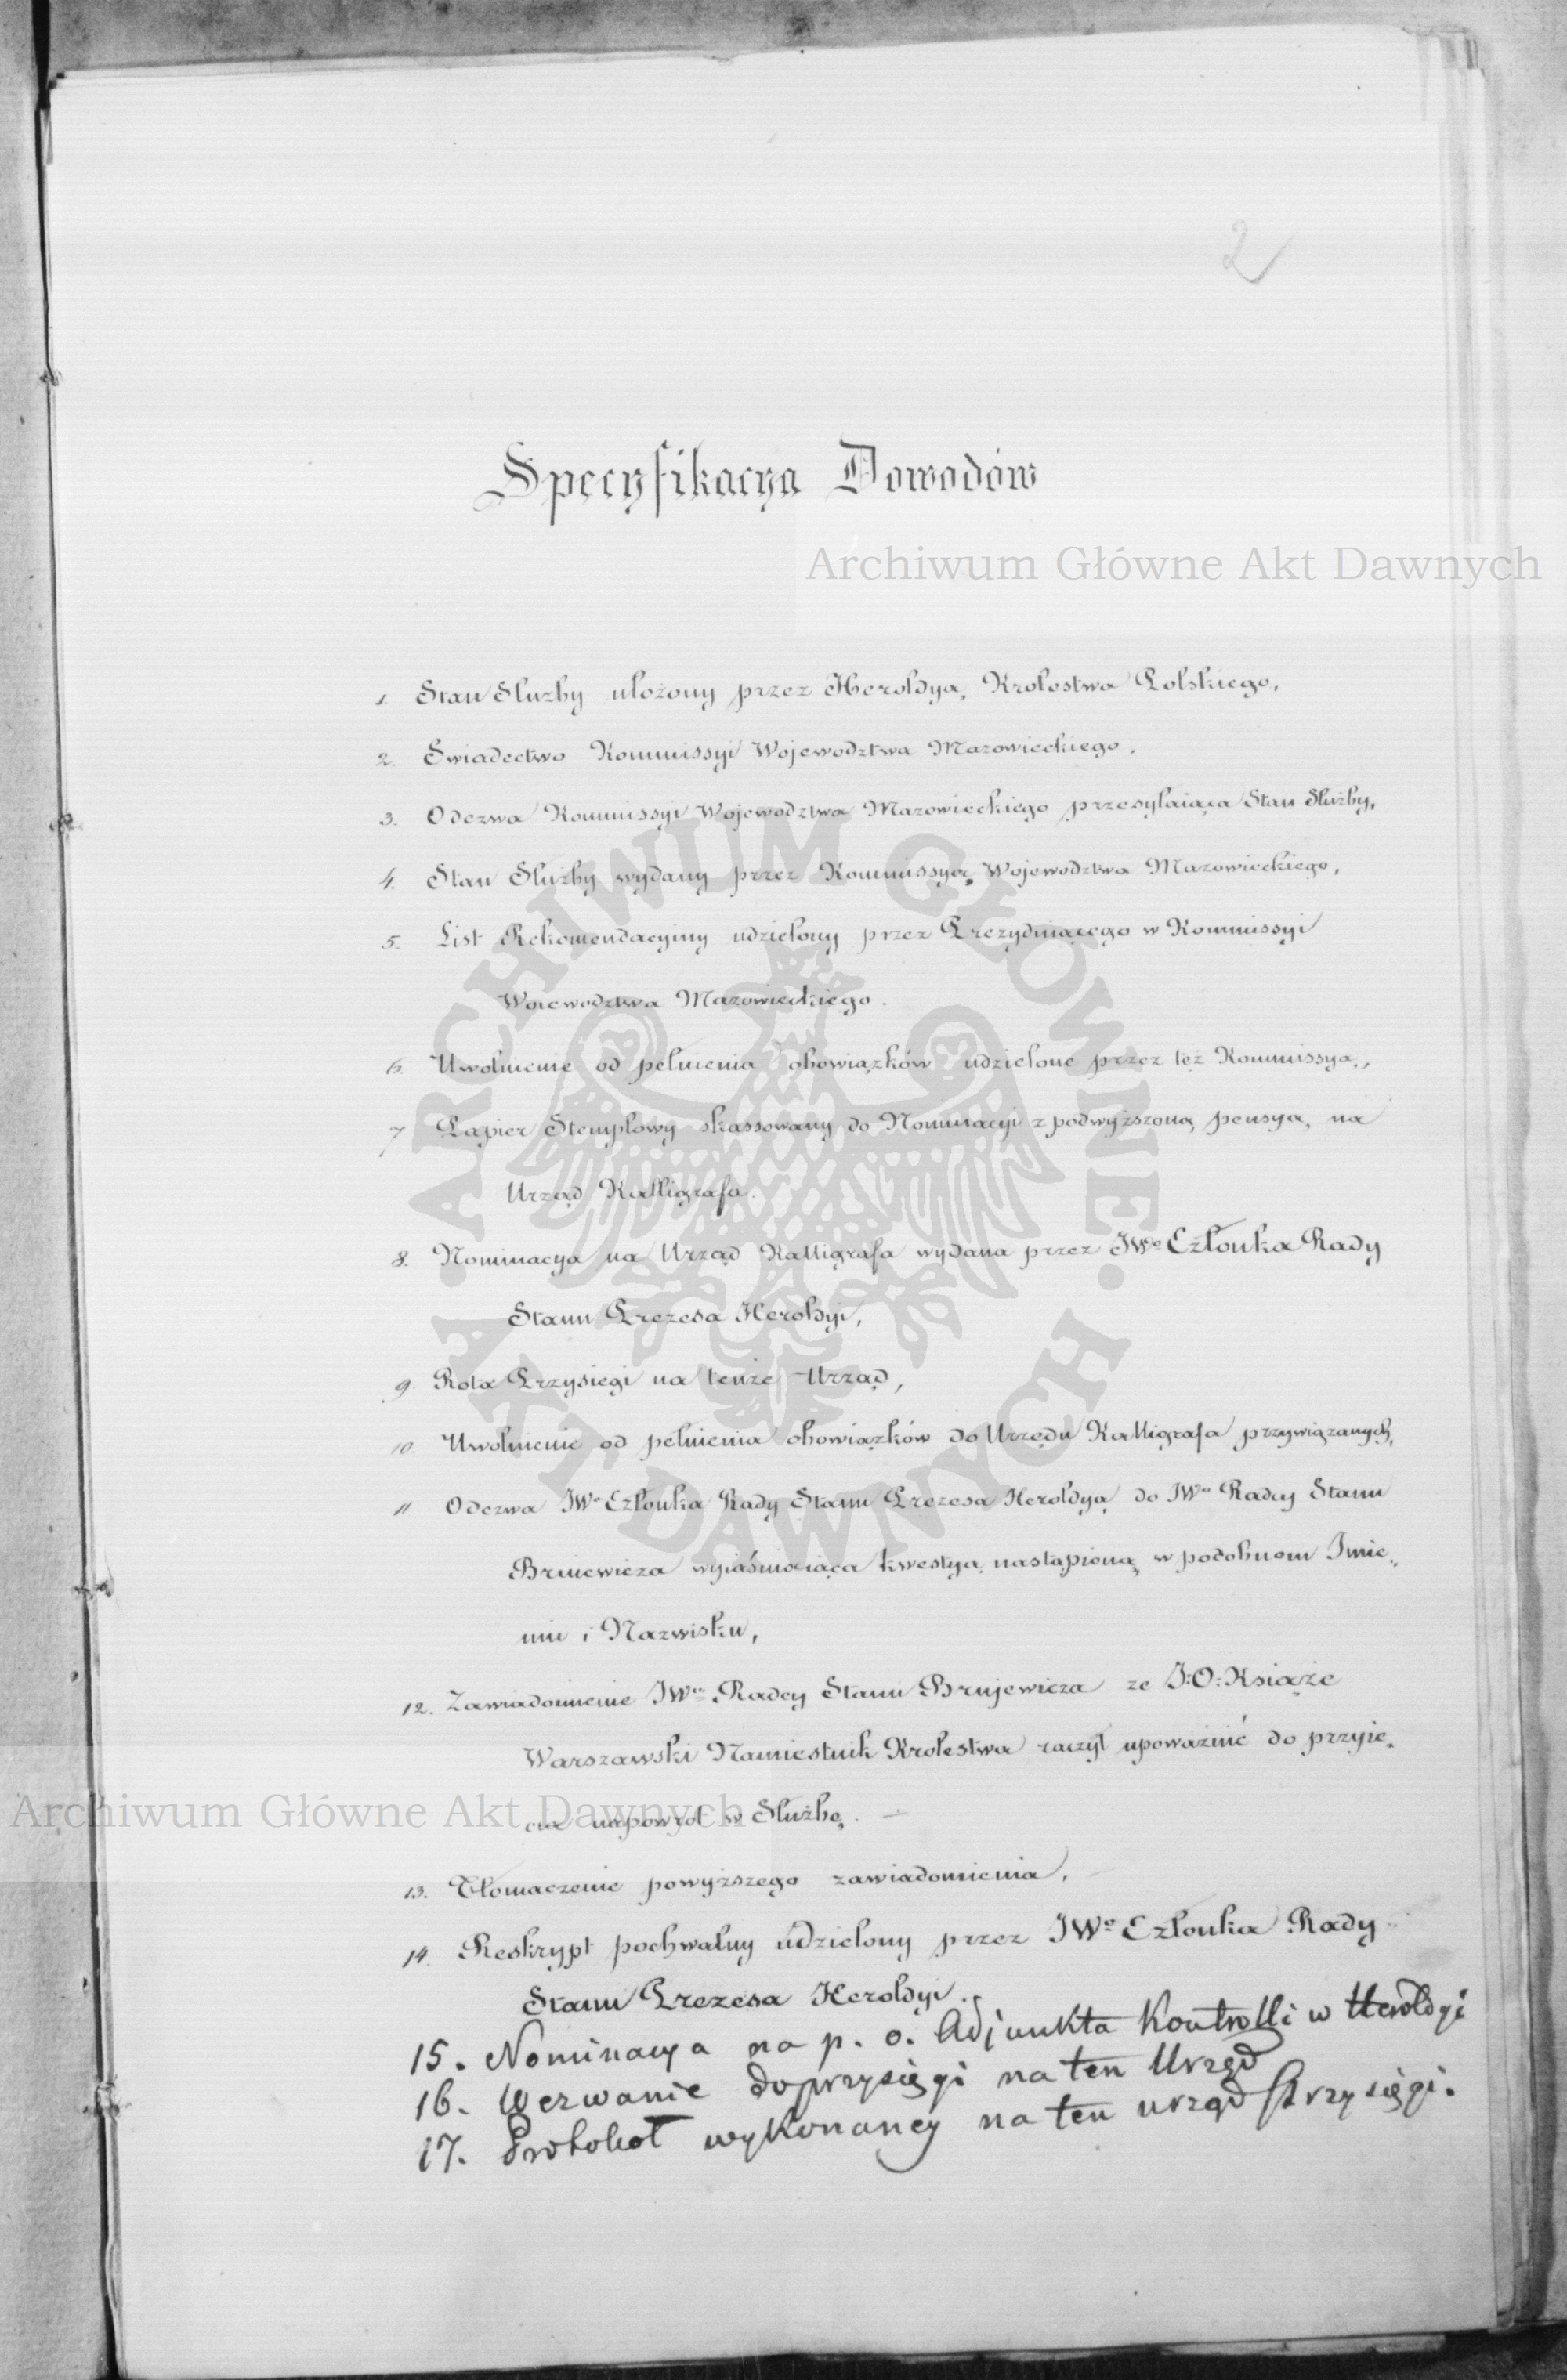 2
Specyfikacya Dowodów
Archiwum Główne Akt Dawnych
1. Stan Służby ułożony przez Heroldyą, Krolestwa Polskiego,
2. Swiadectwo Kommissyi Wojewodztwa Mazowieckiego,
3. Odezwa Kommissyi Wojewodztwa Mazowieckiego przesyłaiąca Stan Służby,
4. Stan Służby wydany przez Kommissyą Wojewodztwa Mazowieckiego,
5. List Rekomendacyiny udzielony przez Prezyduiącego w Kommissyi
Woiewodztwa Mazowieckiego.
6. Uwolnienie od pełnienia obowiązków udzielone przez też Kommissyą,
7 Papier Stemplowy skassowany do Nominacyi z podwyższoną pensyą, na
Urząd Kalligrafa.
8. Nominacya na Urząd Kalligrafa wydana przez JWo Członka Rady
Stanu Prezesa Heroldyi,
9 Rota Przysiegi na tenże Urząd,
10. Uwolnienie od pełnienia obowiązków do Urzędu Kalligrafa przywiązanych,
11 Odezwa JWo Członka Rady Stanu Prezesa Heroldyą do JWo Radcy Stanu
Bruiewicza wyiaśniaiąca kwestyą nastąpioną w podobnem Imie„
niu i Nazwisku,
12. Zawiadomienie JWo Radcy Stanu Brujewicza ze J:O: Książe
Warszawski Namiestnik Krolestwa raczył upoważnić do przyię„
cia napowrot w Służbę. —
13. Tłomaczenie powyższego zawiadomienia,
14. Reskrypt pochwalny udzielony przez JWo Członka Rady
Stanu Prezesa Heroldyi.
15. Nominacya na p. o. Adjunkta Kontrolli w Heroldyi
16. Wezwanie do przysięgi na ten Urząd
17. Protokoł wykonaney na ten urząd Przysięgi.
ARCHIWUM GŁÓWNE AKT DAWNYCH
Archiwum Główne Akt Dawnych